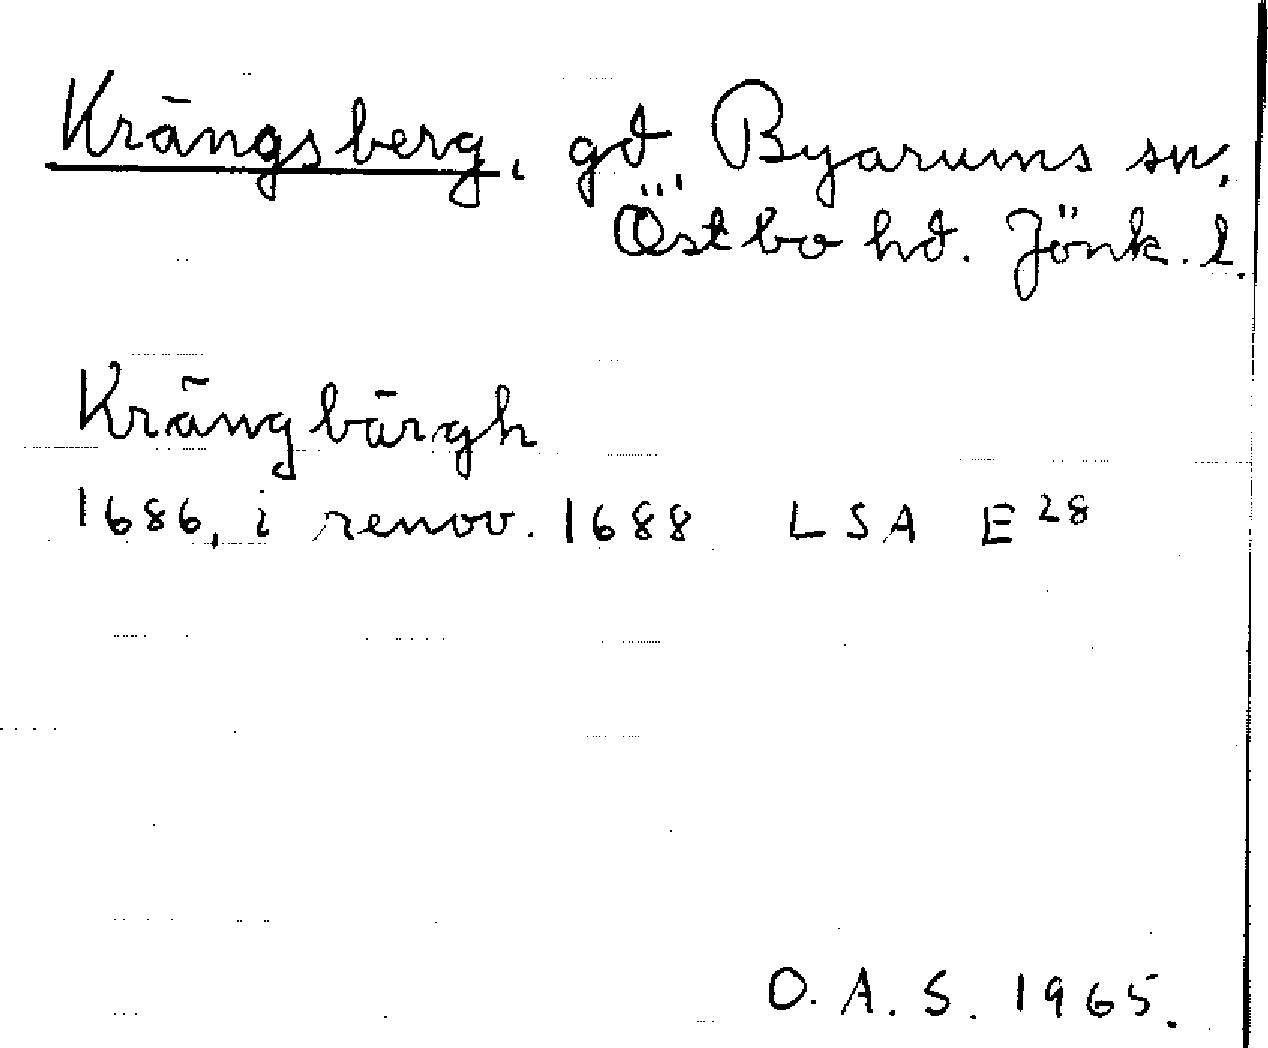 Krängsberg, gd Byarums sn,
Östbo hd. Jönk. l.
Krängbärgh
1686, i renov. 1688 LSA E 28
O. A. S. 1965.